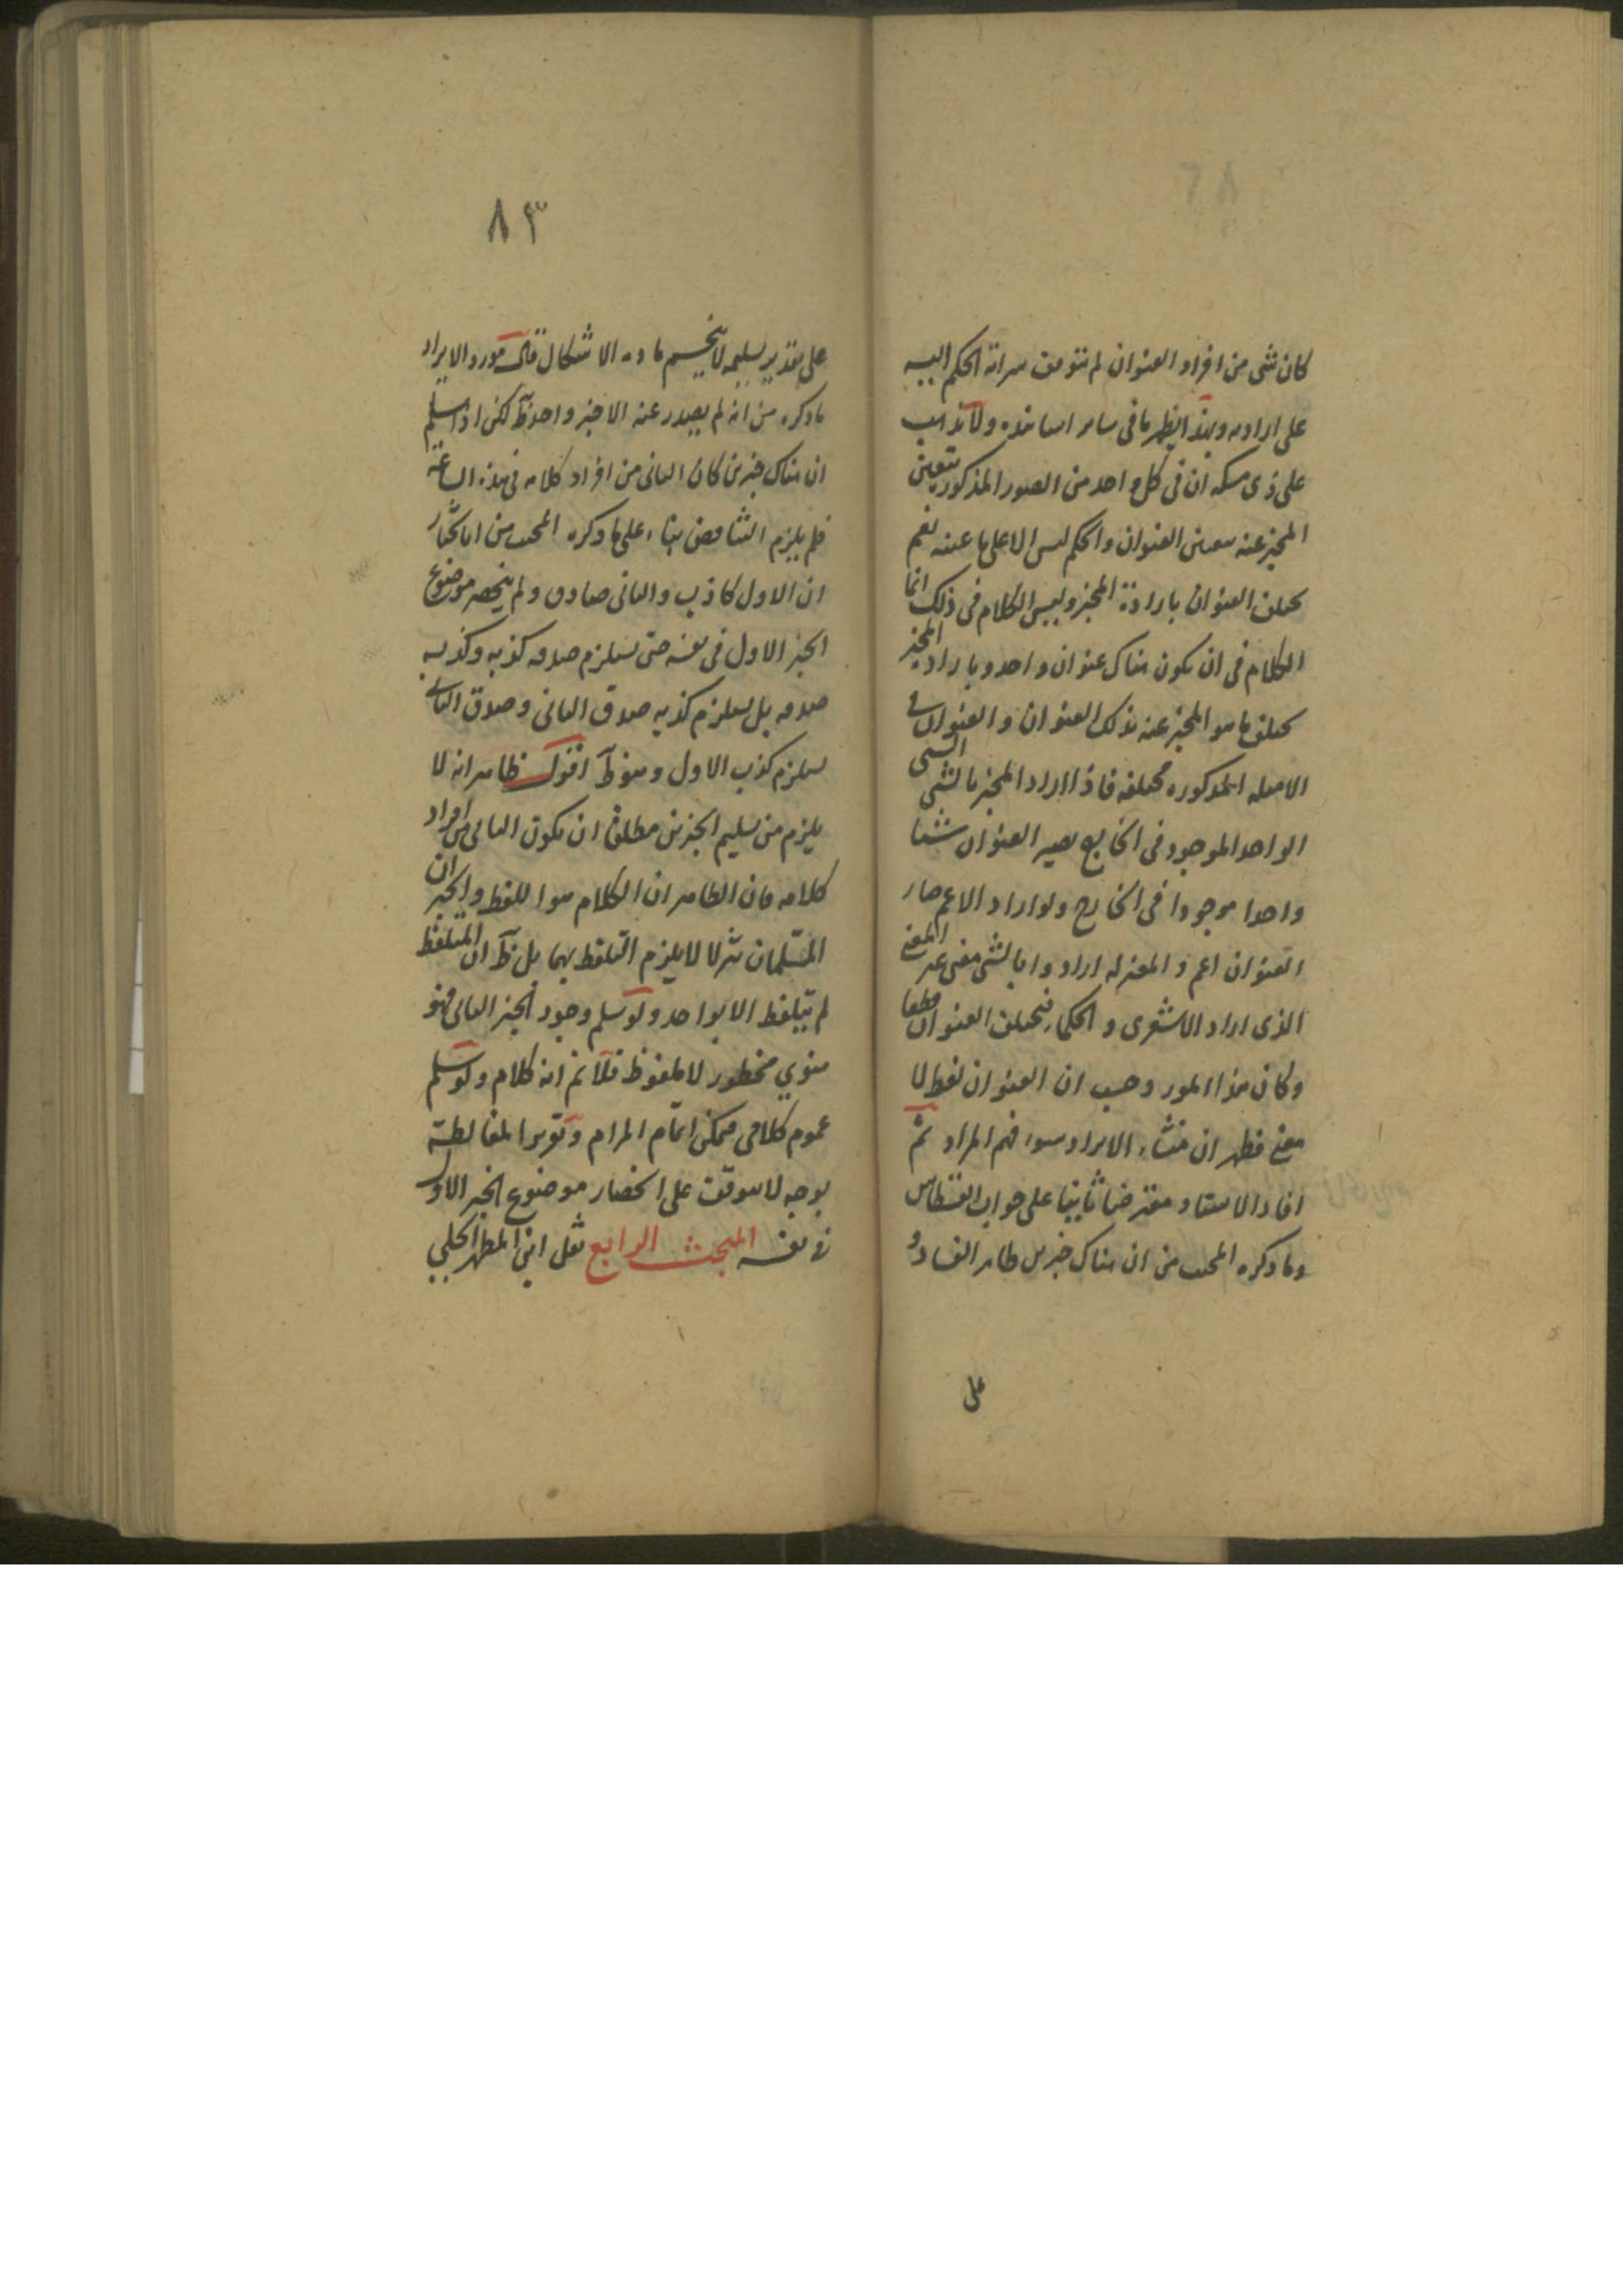 كان شى من افراد العنوان لم تتوقف سراية الحكم اليه
على ارادته وبهذا يظهر ما فى ساير اسانيده ولا يذهب
على ذى مسكه ان فى كل واحد من الصور المذكوره يتعين
المخبر عنه بتعين العنوان والحكم ليس الا على ما عينه نعم
يختلف العنوان بارادة المخبر وليس الكلام فى ذلك انما
الكلام فى ان يكون هناك عنوان واحد وبارادة المخبر
يختلف ما هو المخبر عنه بذلك العنوان والعنوان فى
الامثله المذكوره مختلفه فاذا اراد المخبر بالشى الشى
الواحد الموجود فى الخارج يصير العنوان شيئا
واحدا موجودا فى الخارج ولو اراد الاعم صار
العنوان اعم والمعتزله ارادوا بالشى معنى غير المعنى
الذى اراد الاشعرى والحكماء فيختلف العنوان قطعا
وكان هذا المورد حسب ان العنوان لفظ لا
معنى فظهر ان منشاء الايراد سوء فهم المراد ثم
افاد الاستاد معترضا ثانيا على جواب القسطاس
وما ذكره المجيب من ان هناك خبرين ظاهر الفساد و
على
٨٣
على تقدير تسليمه لا ينحسم مادة الاشكال قال مورد الايراد
ما ذكره من انه لم يصدر عنه الا خبر واحد ظ لكن اذا سلم
ان هناك خبرين كان الثانى من افراد كلامه فى هذه الساعة
فلم يلزم التناقض بناء على ما ذكره المجيب من انا نختار
ان الاول كاذب والثانى صادق ولم ينحصر موضوع
الخبر الاول فى نفسه حتى يستلزم صدقه كذبه وكذبه
صدقه بل يستلزم كذبه صدق الثانى وصدق الثانى
يستلزم كذب الاول وهو ظ اقول ظاهر انه لا
يلزم من تسليم الخبرين مطلقا ان يكون الثانى من افراد
كلامه فان الظاهر ان الكلام هو اللفظ والخبر ان
المسلمان تنزلا لا يلزم التلفظ بهما بل ظ ان المتلفظ
لم يتلفظ الا بواحد ولو سلم وجود الخبر الثانى فهو
منوي مخطور لا ملفوظ فلا نم انه كلام ولو سلم
عموم كلامى فيمكن اتمام المرام وتقرير المغالطة
بوجه لا يتوقف على انحصار موضوع الخبر الاول
فى نفسه المبحث الرابع نقل ابن المطهر الحلي